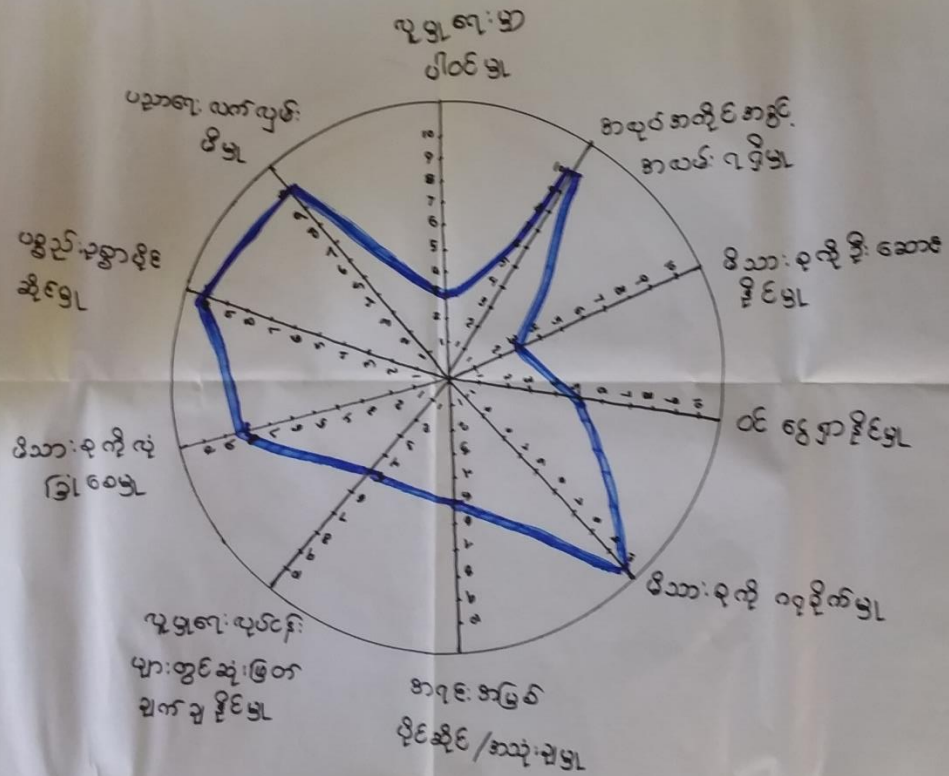 လူမှုရေးမှာ
ပါဝင်မှု
အလုပ်အကိုင်အခွင့်
အလမ်းရရှိမှု
မိသားစုကိုဦးဆောင်
နိုင်မှု
ဝင်ငွေရှာနိုင်မှု
မိသားစုကို ဂရုစိုက်မှု
အရင်းအမြစ်
ပိုင်ဆိုင်/အသုံးချမှု
လူမှုရေးလုပ်ငန်း
များတွင်ဆုံးဖြတ်
ချက်ချနိုင်မှု
မိသားစုကိုလုံ
ခြုံစေမှု
ပစ္စည်းဥစ္စာပိုင်
ဆိုင်မှု
ပညာရေးလက်လှမ်း
မီမှု